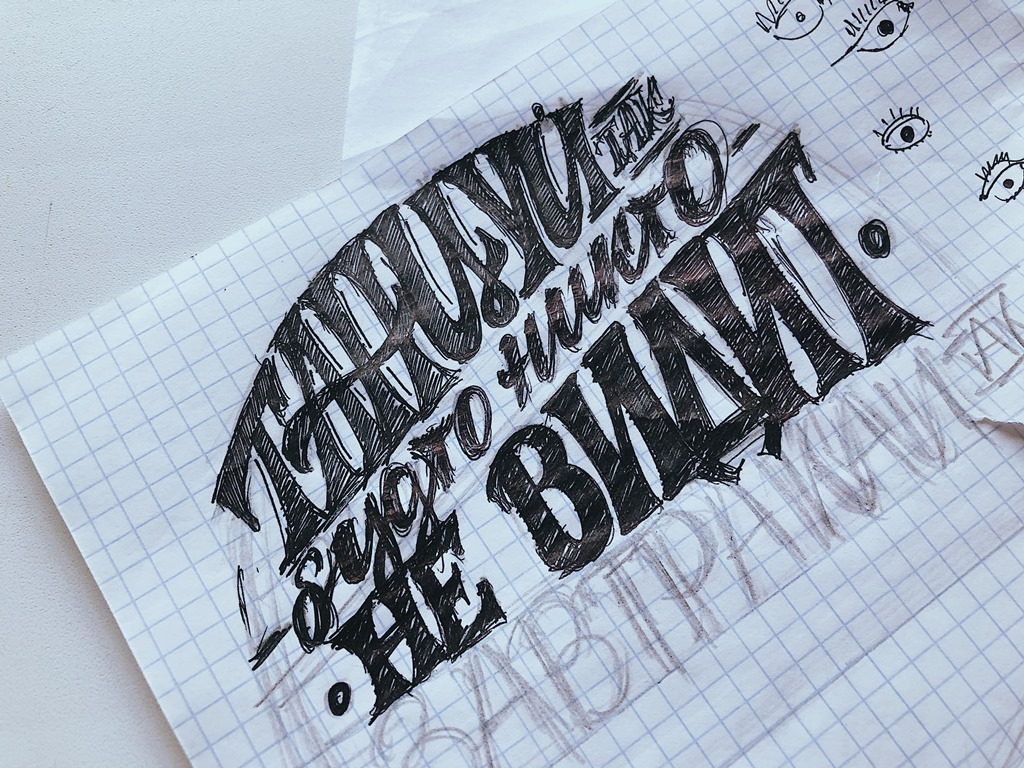 ТАНЦУЙ ТАК
будто никто
НЕ ВИДИТ
ЗАВТРАКАЙ ТАК